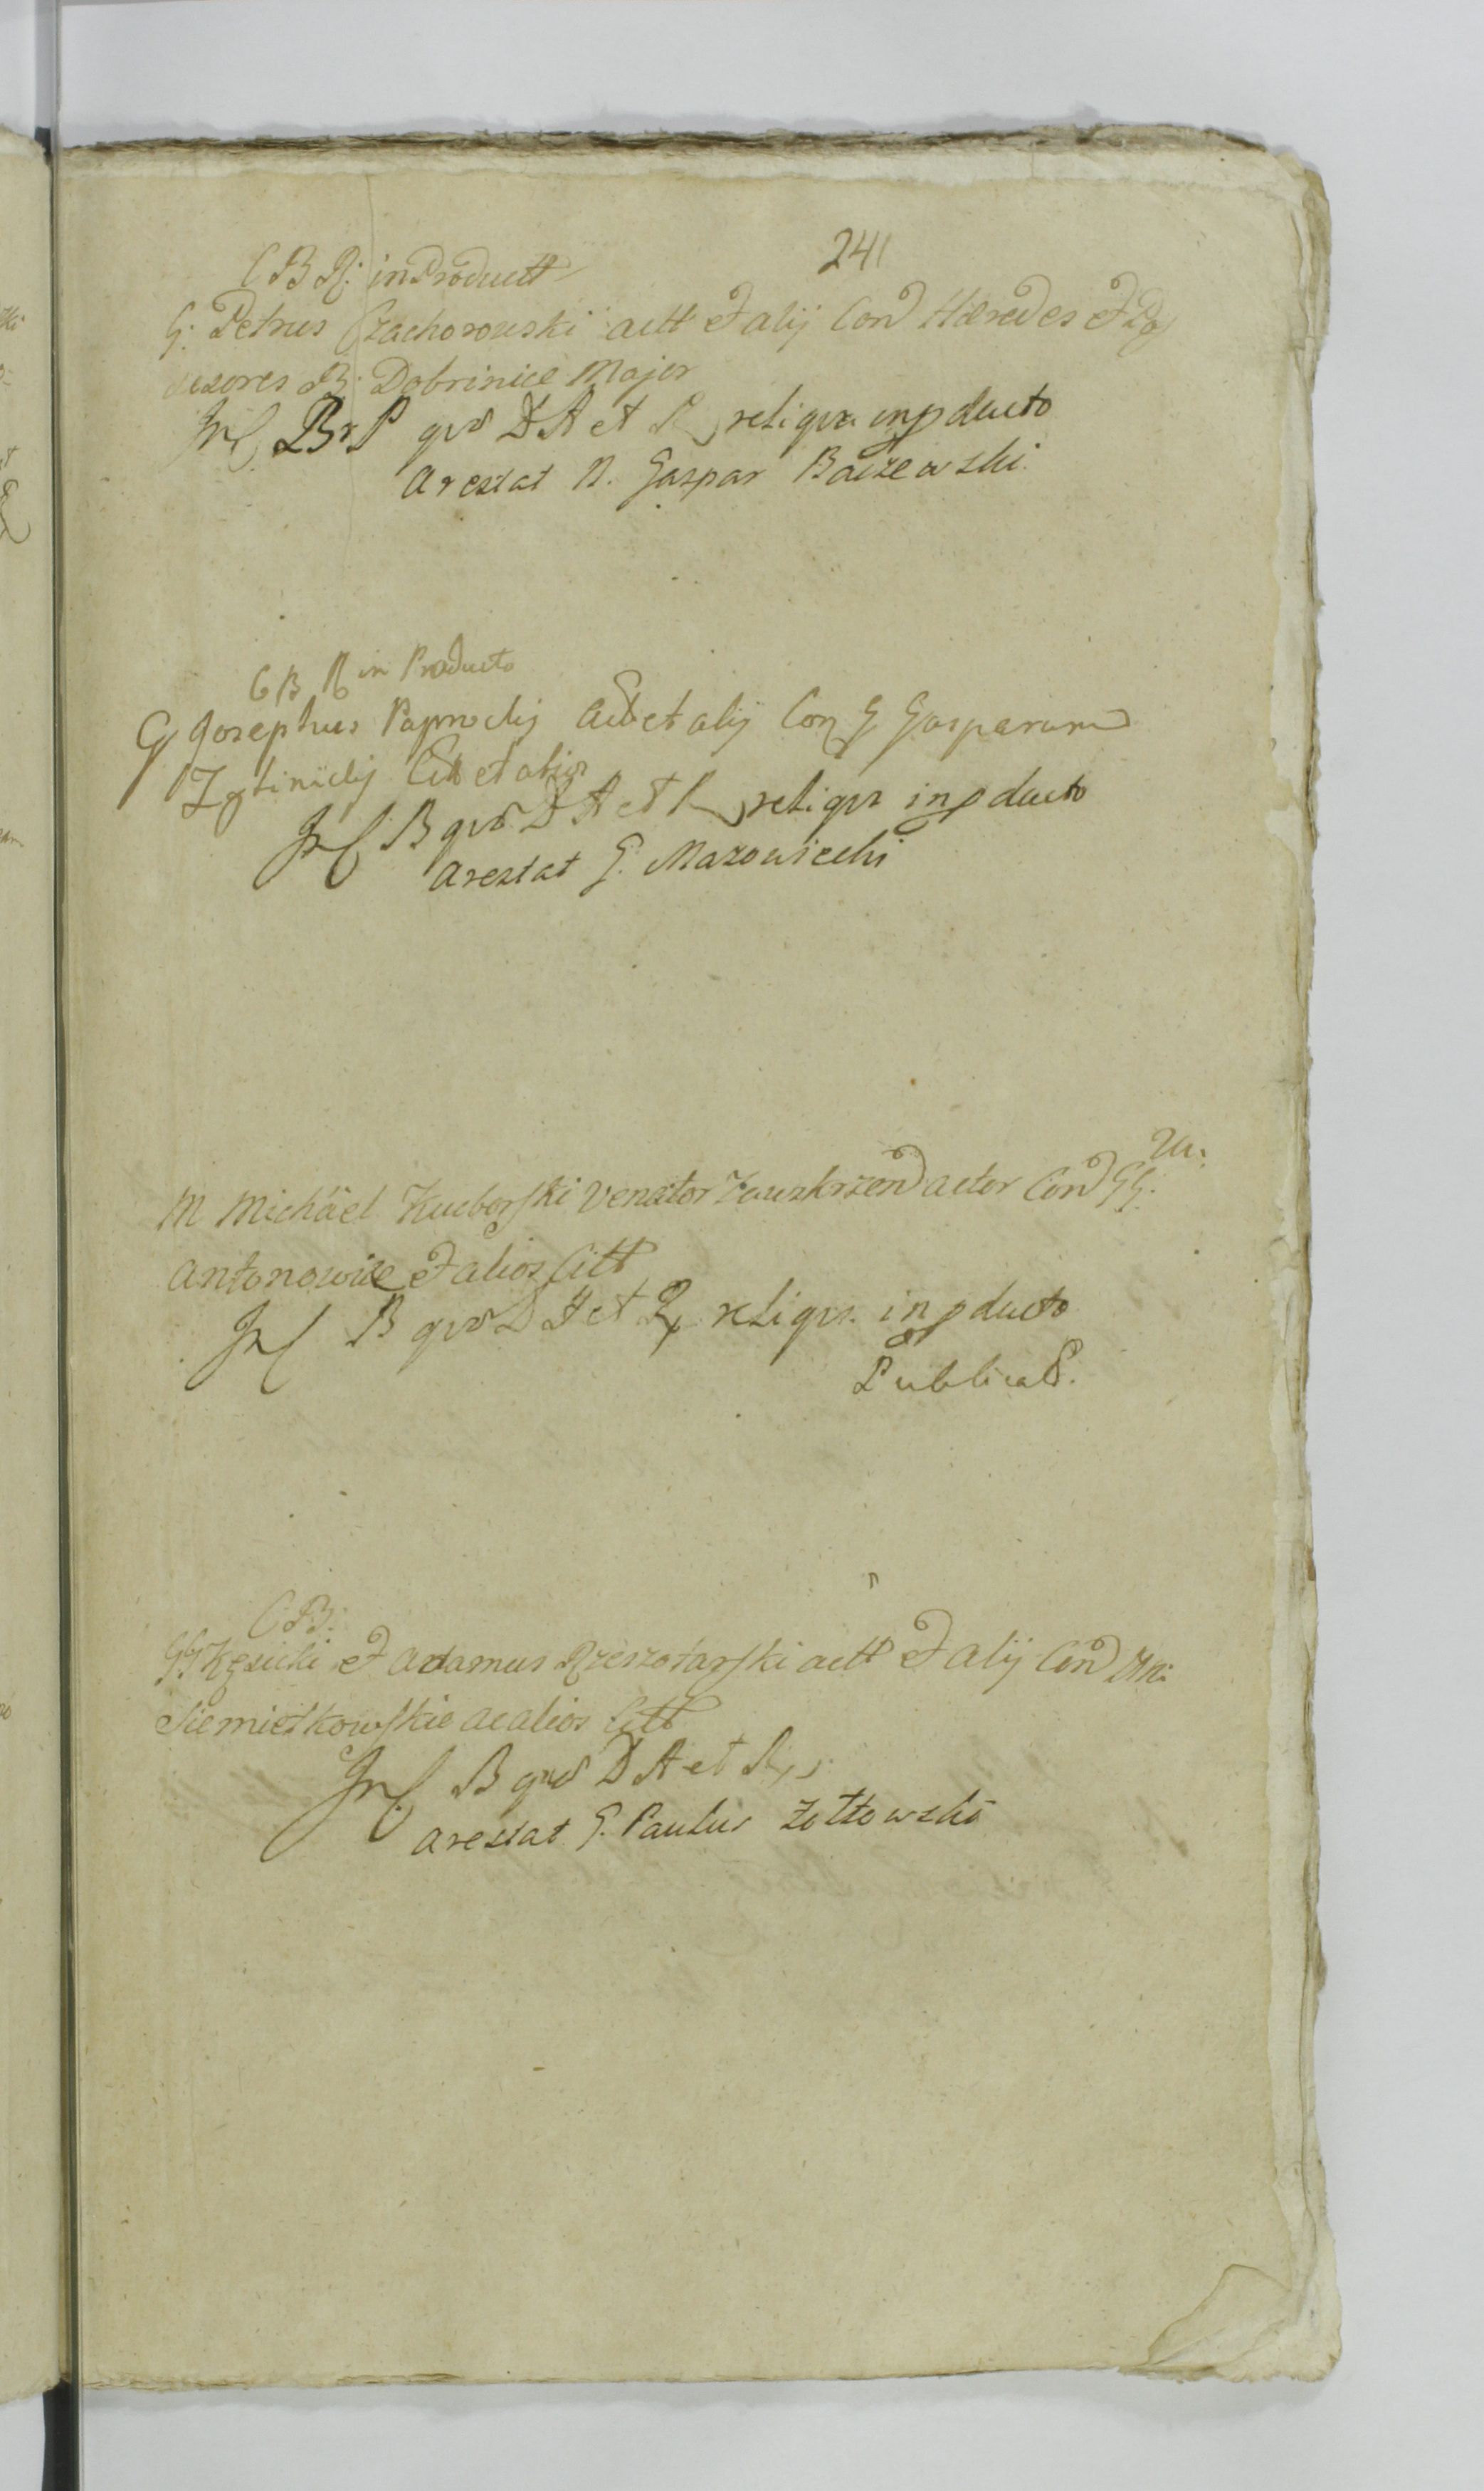 241
C B R: in Productt
G: Petrus Czachorowski actt et alij Con Hæredes et Pos
sesores B: Dobrinice Major
B et P qvo D A et R reliqva in pducto
Arestat N. Gaspar Baizewski.
C B R in Producto
G Josephus Paprockij Act et alij Con G Gasparum
Zglinickij Citt et alios
B qvo D A et R reliqva in pducto
Arestat G. Mazowiecki
M Michäel Kucborski Venator Zawzkrzen actor Con GG.
Antonowice et alios Citt
B qvo D A et R reliqva in pducto
Publicat.
C B:
GG Kęsicki et Adamus Rzeszotarski actt et alij Con MM:
Siemiątkowskie ac alios Citt
B qvo D A et R
Arestat G. Paulus Żołtowski